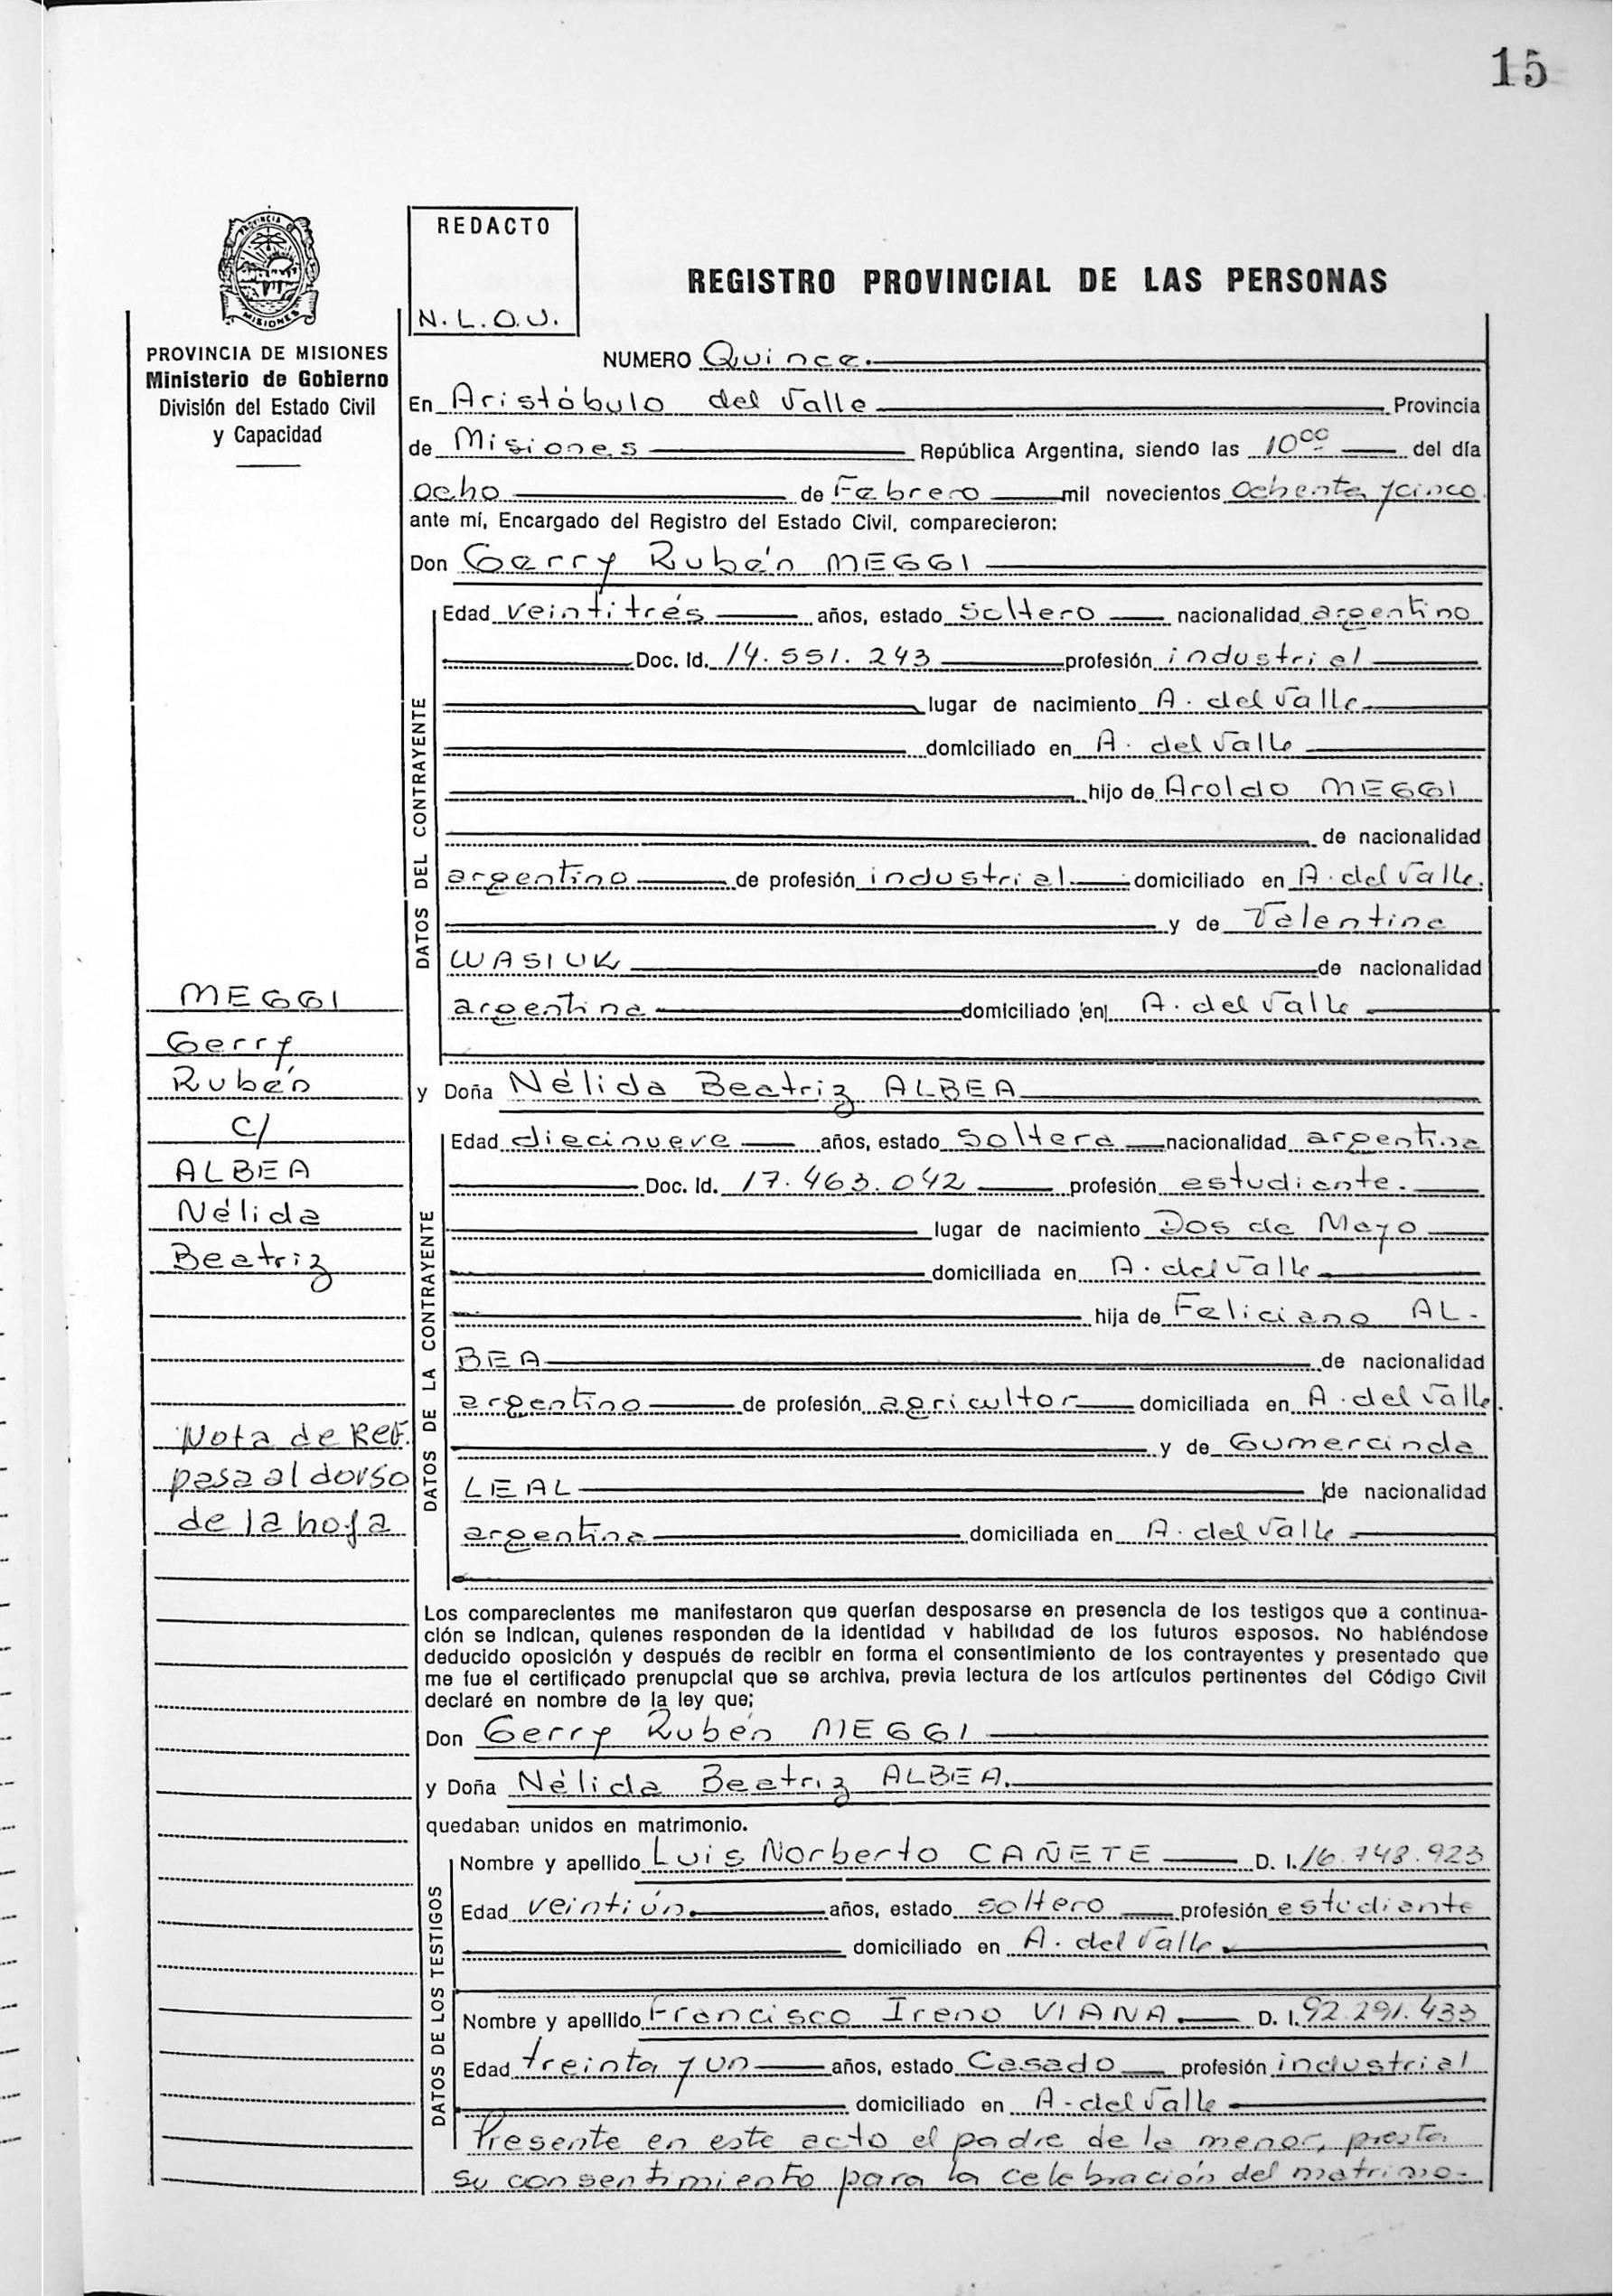 15
REDACTO
N.L.O.U.
PROVINCIA DE
MISIONES
REGISTRO PROVINCIAL DE LAS PERSONAS
PROVINCIA DE MISIONES
Ministerio de Gobierno
División del Estado Civil
y Capacidad
NUMERO Quince.
En Aristóbulo del Valle Provincia
de Misiones República Argentina, siendo las 10 00 del día
ocho de Febrero mil novecientos ochenta y cinco
ante mí, Encargado del Registro del Estado Civil, comparecieron:
Don Gerry Rubén MEGGI
DATOS DEL CONTRAYENTE
Edad veintitrés años, estado Soltero nacionalidad argentino
Doc. Id. 14.551.243 profesión industrial
lugar de nacimiento A. del Valle
domiciliado en A. del Valle
hijo de Aroldo MEGGI
de nacionalidad
argentino de profesión industrial domiciliado en A. del Valle.
y de Valentina
WASIUK de nacionalidad
argentina domiciliado en A. del Valle
MEGGI
Gerry
Rubén
c/
ALBEA
Nélida
Beatriz
Nota de Ref.
pasa al dorso
de la hoja
y Doña Nélida Beatriz ALBEA
DATOS DE LA CONTRAYENTE
Edad diecinueve años, estado Soltera nacionalidad argentina
Doc. Id. 17.463.042 profesión estudiante.
lugar de nacimiento Dos de Mayo
domiciliada en A. del Valle
hija de Feliciano AL-
BEA de nacionalidad
argentino de profesión agricultor domiciliada en A. del Valle.
y de Gumercinda
LEAL de nacionalidad
argentina domiciliada en A. del Valle
Los comparecientes me manifestaron que querían desposarse en presencia de los testigos que a continua-
ción se indican, quienes responden de la identidad y habilidad de los futuros esposos. No habiéndose
deducido oposición y después de recibir en forma el consentimiento de los contrayentes y presentado que
me fue el certificado prenupcial que se archiva, previa lectura de los artículos pertinentes del Código Civil
declaré en nombre de la ley que;
Don Gerry Rubén MEGGI
y Doña Nélida Beatriz ALBEA.
quedaban unidos en matrimonio.
DATOS DE LOS TESTIGOS
Nombre y apellido Luis Norberto CAÑETE D. I. 16.748.923
Edad veintiún años, estado soltero profesión estudiante
domiciliado en A. del Valle
Nombre y apellido Francisco Ireno VIANA D. I. 92.291.433
Edad treinta y un años, estado Casado profesión industrial
domiciliado en A. del Valle
Presente en este acto el padre de la menor, presta
su consentimiento para la celebración del matrimo-